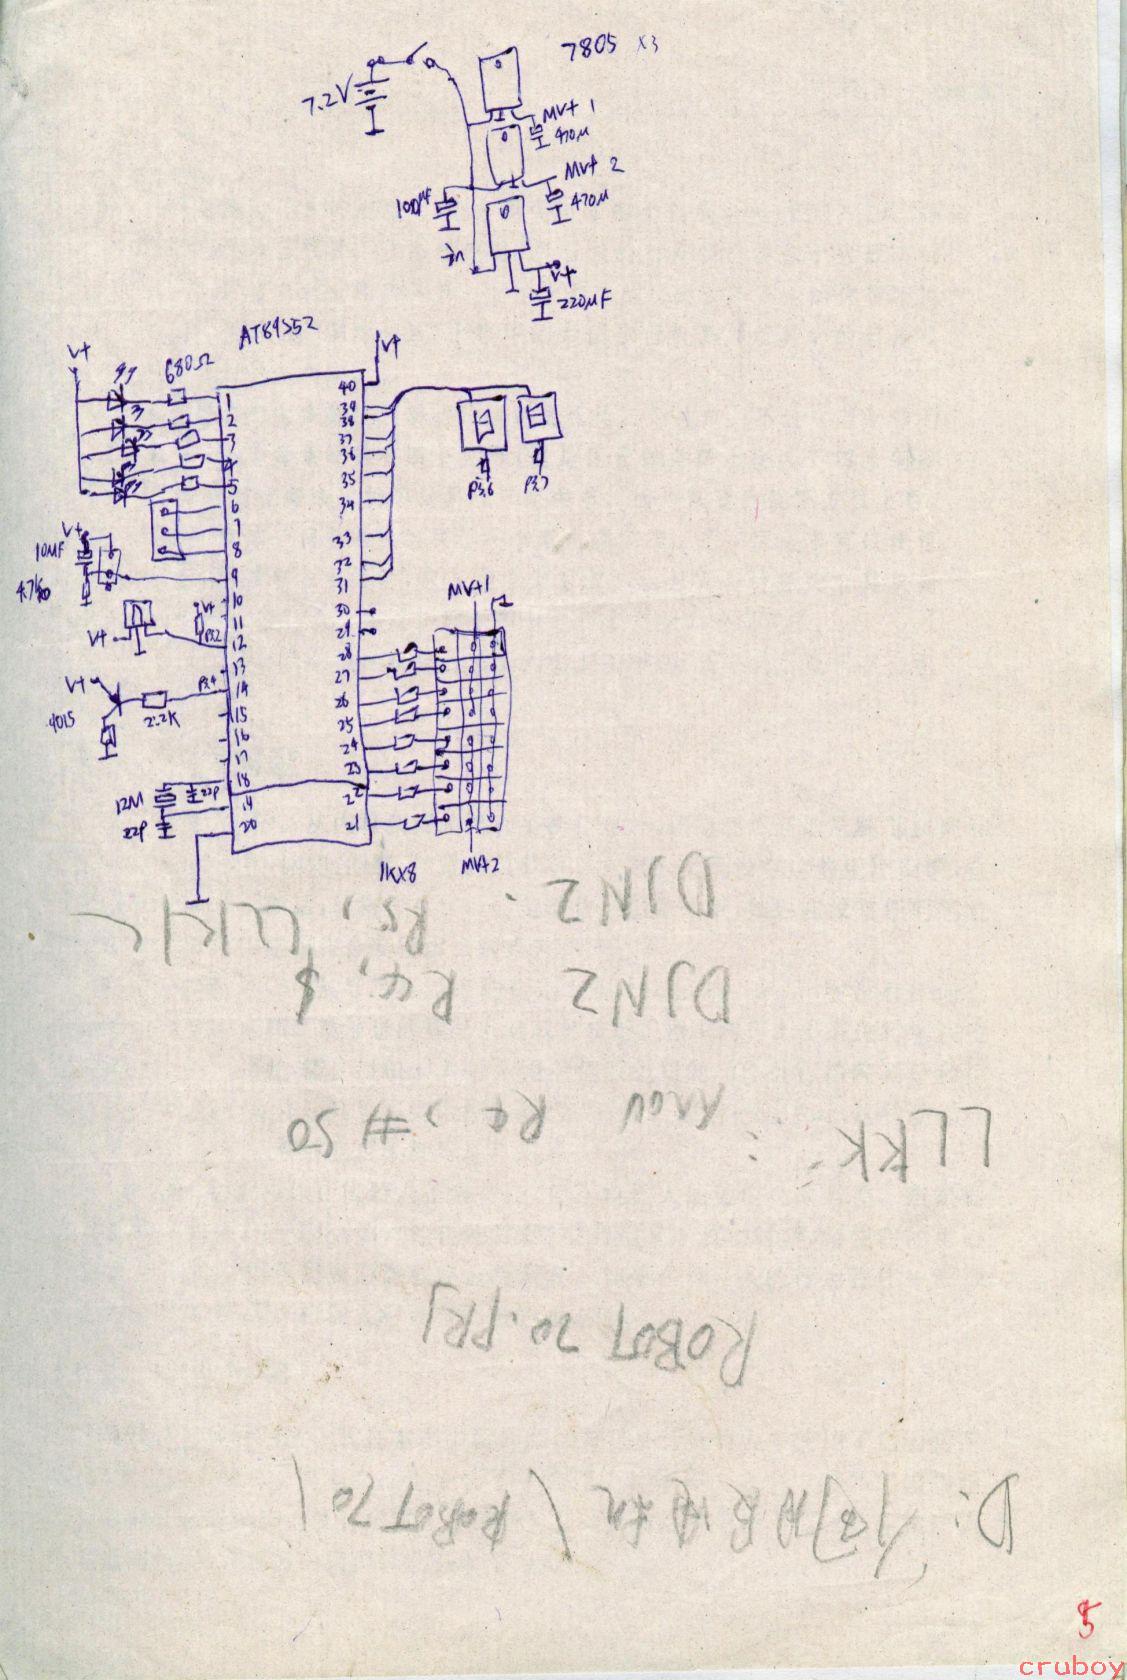 7805 x3
7.2V
MV+ 1
470μ
MV+ 2
100μF
470μ
V+
220μF
AT89S52
V+
680Ω
V+
1
2
3
4
5
6
7
8
9
10
11
12
13
14
15
16
17
18
19
20
40
39
38
37
36
35
34
33
32
31
30
29
28
27
26
25
24
23
22
21
P3.6
P3.7
V+
10MF
V+
V+
P3.2
V+
P3.4
2.2K
12M
22P
22P
MV+1
MV+2
1KX8
DJNZ R5, LLK1C
DJNZ R4, $
LLKK: MOV R4, #50
ROBOT70.PRJ
D:
\ROBOT70\
5
cruboy